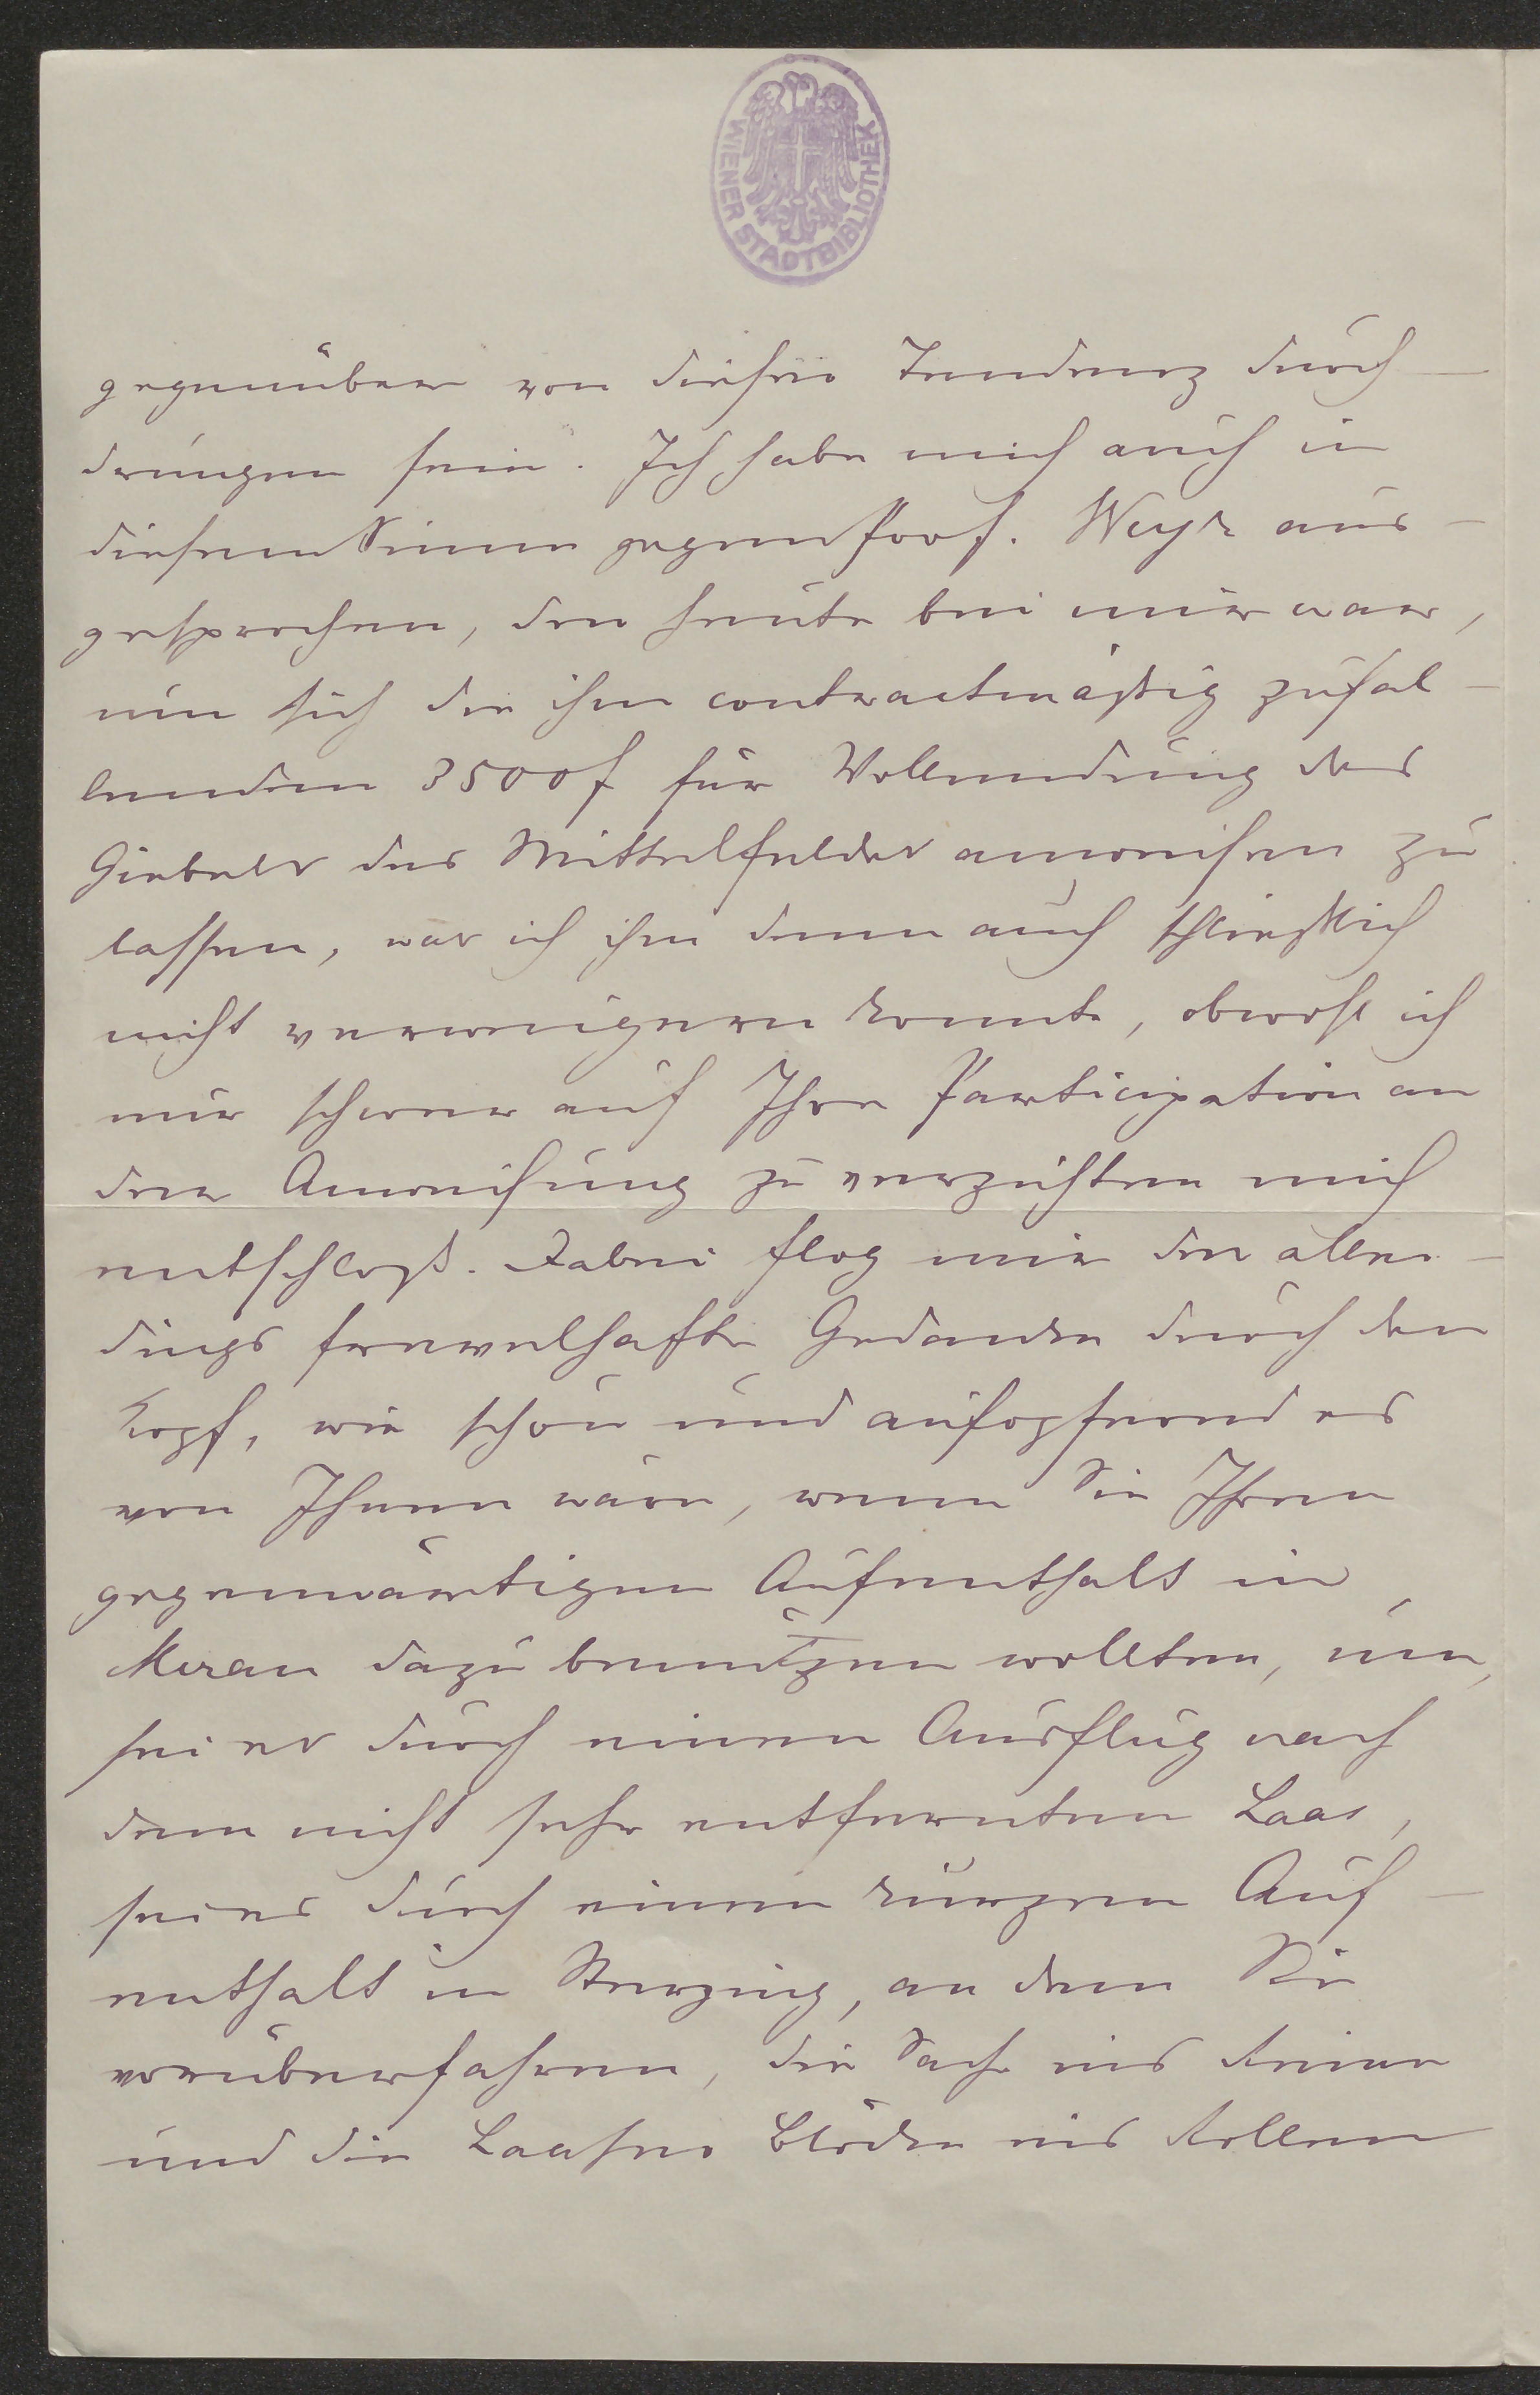 WIENER STADTBIBLIOTHEK
gegenüber von dieser Tendenz durch-
drungen sein. Ich habe mich auch in
diesem Sinne gegen Prof. Weyr aus-
gesprochen, der heute bei mir war,
um sich die ihm contractmäßig zufal-
lenden 3500 f für Vollendung des
Giebels des Mittelfeldes anweisen zu
lassen, was ich ihm denn auch schließlich
nicht verweigern konnte, obwohl ich
nur schwer auf Ihre Participation an
der Anweisung zu verzichten mich
entschloß. Dabei flog mir der aller-
dings frevelhafte Gedanke durch den
Kopf, wie schön und aufopfernd es
von Ihnen wäre, wenn Sie Ihren
gegenwärtigen Aufenthalt in
Meran dazu benutzen wollten, um,
sei es durch einen Ausflug nach
dem nicht sehr entfernten Laas,
sei es durch einen kurzen Auf-
enthalt in Sterzing, an dem Sie
vorüberfahren, die Sache ins Reine
und die Laaser Blöcke ins Rollen